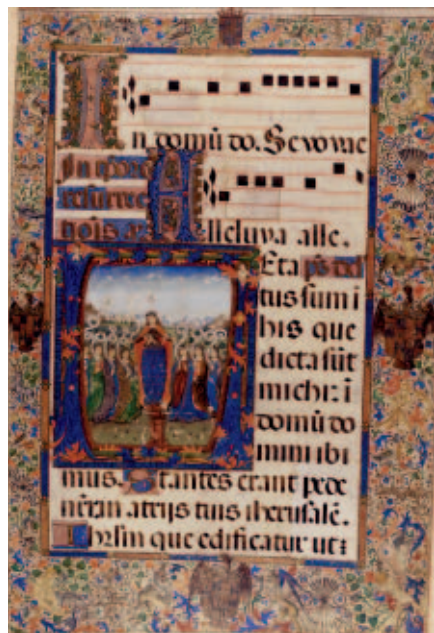 In domū do. Sevovae
In tpore
resurrec
nois a. Alleluya alle.
Leta
tus sum i
his que
dicta sūt
michi: i
domū do
mini ibi
mus. Stantes erant pede
nr̄i in atrijs tuis iherusalē.
Ihrlm que edificatur ut: